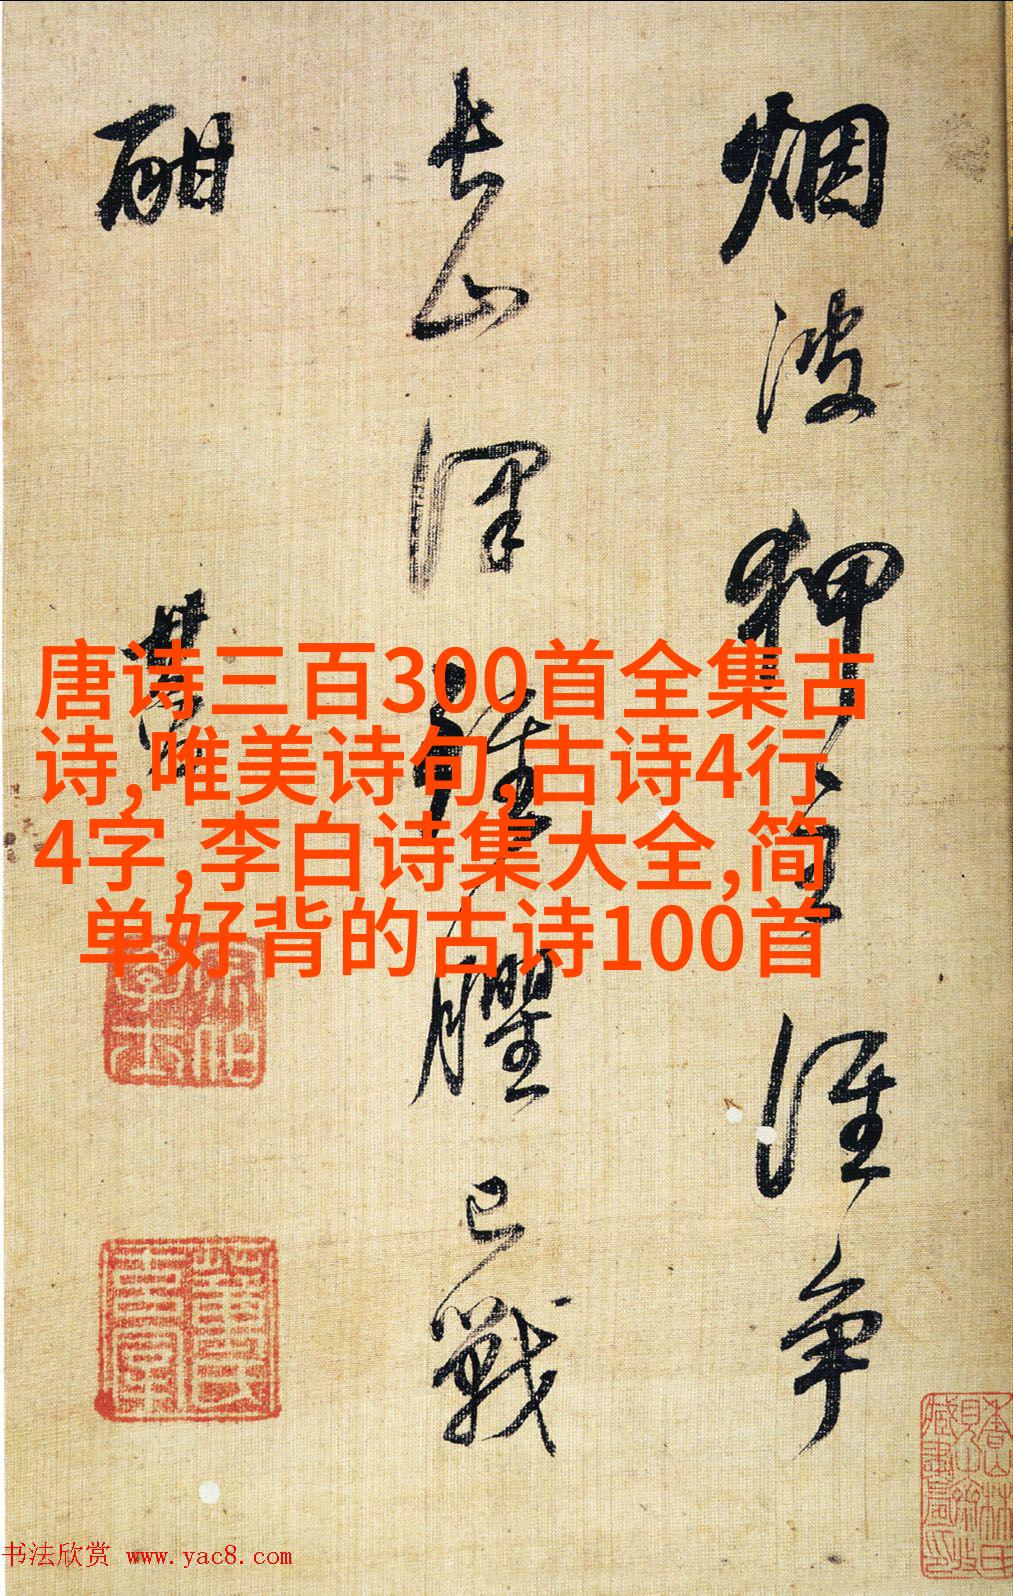 烟波狎主誰争
長山澤臞已戰
酣
其昌
唐诗三百300首全集古
诗,唯美诗句,古诗4行
4字,李白诗集大全,简
单好背的古诗100首
书法欣赏 www.yac8.com